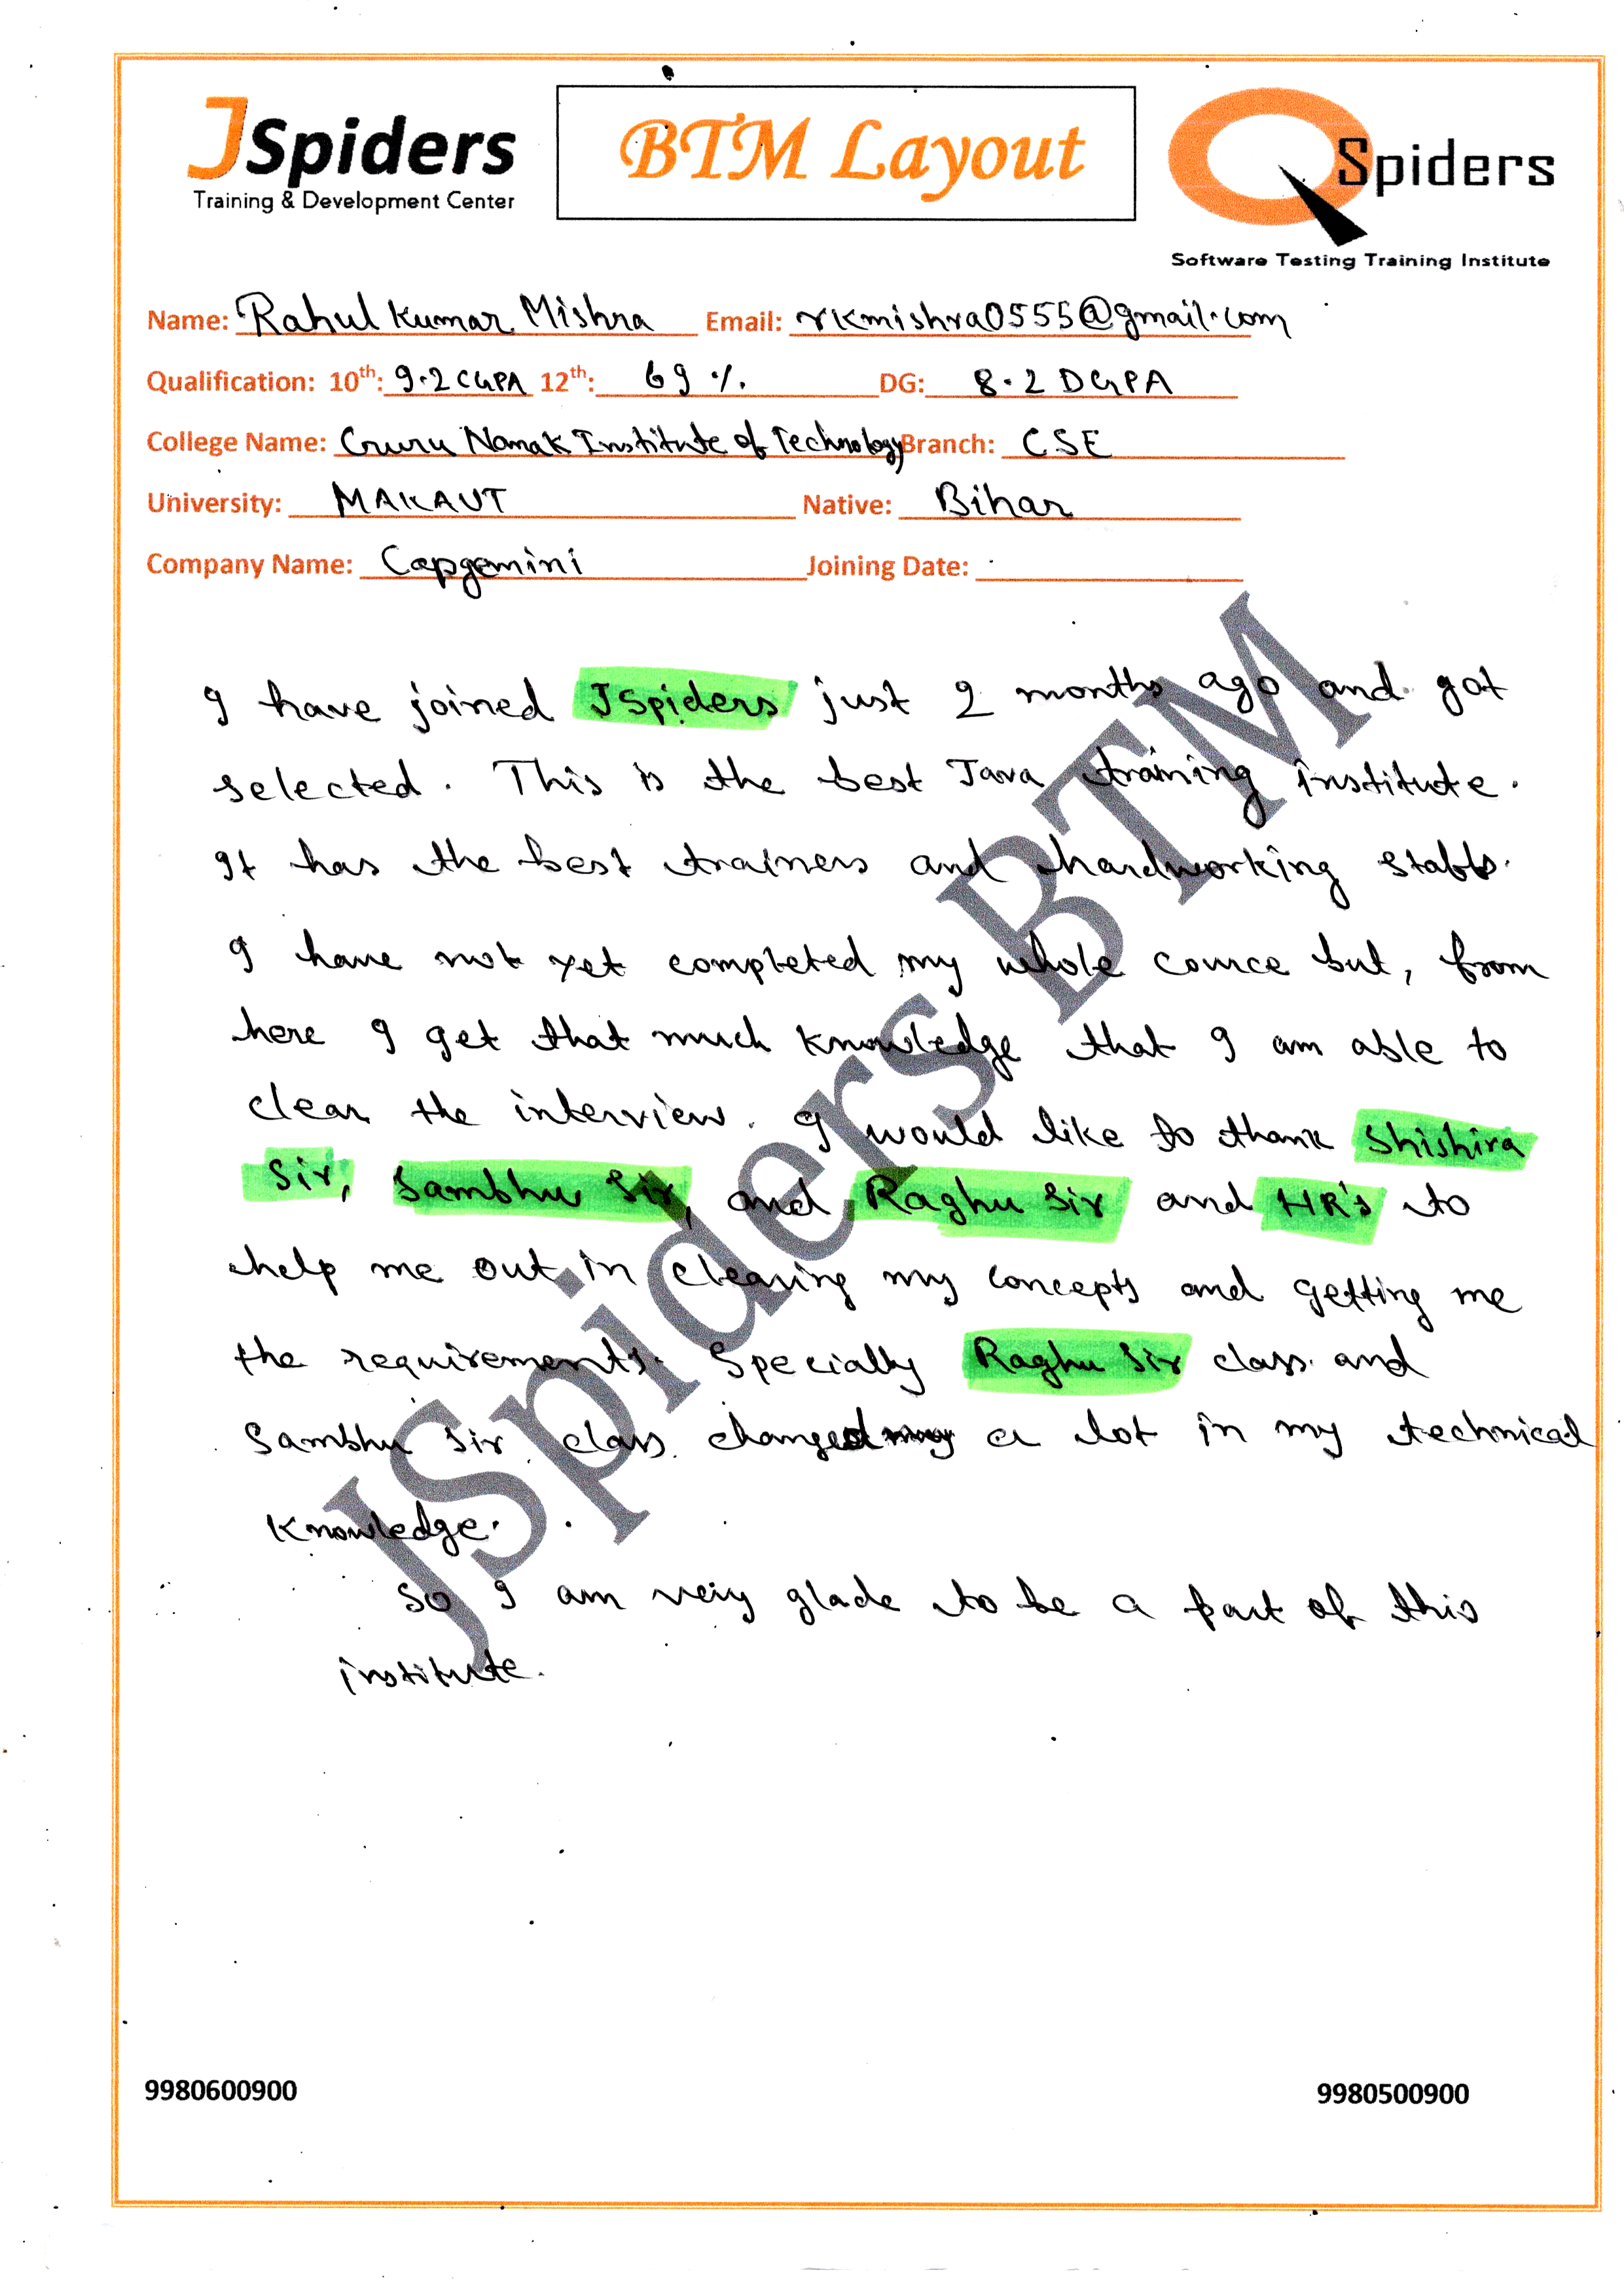 JSpiders
Training & Development Center
BTM Layout
QSpiders
Software Testing Training Institute
Name: Rahul Kumar Mishra Email: rkmishra0555@gmail.com
Qualification: 10th: 9.2 CGPA 12th: 69 % DG: 8.2 DGPA
College Name: Guru Nanak Institute of Technology Branch: CSE
University: MAKAUT Native: Bihar
Company Name: Capgemini Joining Date:
I have joined JSpiders just 2 months ago and got
selected. This is the best Java training institute.
It has the best trainers and hardworking staffs.
I have not yet completed my whole cource but, from
here I get that much knowledge that I am able to
clear the interview. I would like to thank Shishira
Sir, Sambhu Sir, and Raghu Sir and HR's to
help me out in clearing my concepts and getting me
the requirements. Specially Raghu Sir class and
Sambhu Sir class changed a lot in my technical
knowledge.
So I am very glade to be a part of this
institute.
JSpiders BTM
9980600900 9980500900